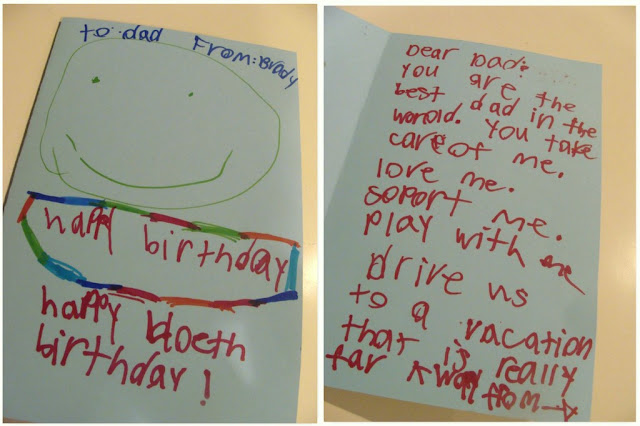 to: dad From: Brady
happy birthday
happy 40eth
birthday!
Dear Dad:
you are the
best dad in the
woruld. You take
care of me.
love me.
soport me.
play with me
drive us
to a vacation
that is really
far away from →